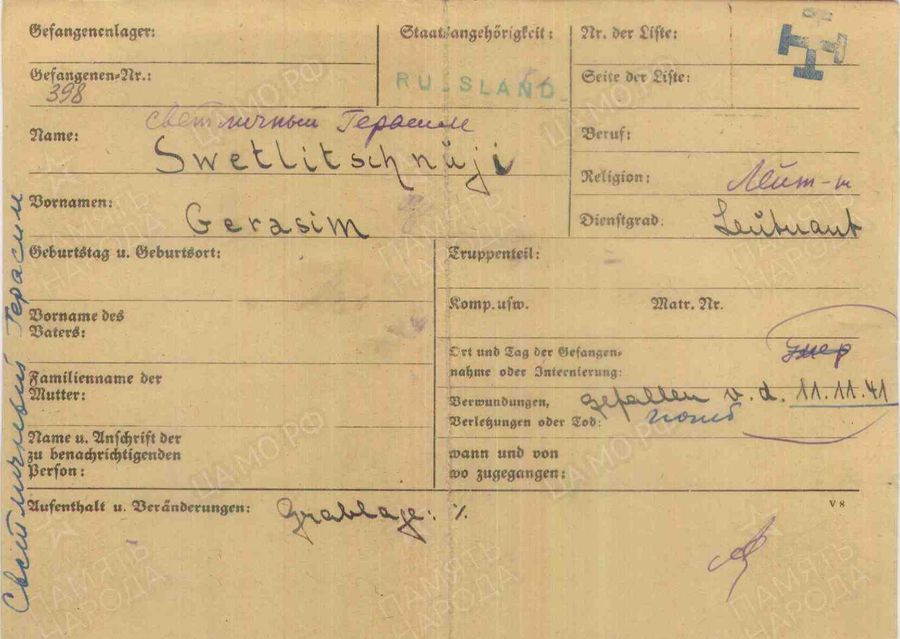 Gefangenenlager:
Staatsangehörigkeit:
Nr. der Liste:
Gefangenen-Nr.:
398
RUSSLAND
Seite der Liste:
Светличный Герасим
Name:
Swetlitschnüji
Beruf:
Religion:
Лейт-т
Vornamen:
Gerasim
Dienstgrad:
Leutnant
Geburtstag u. Geburtsort:
Truppenteil:
Komp. usw.
Matr. Nr.
Vorname des
Vaters:
Ort und Tag der Gefangen-
nahme oder Internierung:
умер
Familienname der
Mutter:
Verwundungen,
Verletzungen oder Tod:
gefallen v. d. 11.11.41
погиб
Name u. Anschrift der
zu benachrichtigenden
Person:
wann und von
wo zugegangen:
Aufenthalt u. Veränderungen:
Grablage: ⁒
V 8
Светличный Герасим
ЦАМО.РФ
ПАМЯТЬ
НАРОДА